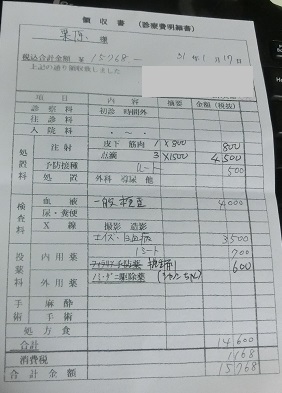 領収書 (診療費明細書)
栗原 様
税込合計金額 ¥15768- 31年1月17日
上記の通り領収致しました
項目 内容 摘要 金額(税抜)
診察料 初診 時間外
往診料
入院料 ・~・
処置料 注射 皮下 筋肉 1 ×800 800
点滴 3 ×1500 4,500
予防接種 ルート 500
処置 外科 導尿 他
検査料 血液 一般検査 4000
尿・糞便
X線 撮影 造影
エイズ・白血病 3,500
投薬料 内用薬 1シート 700
フィラリア予防薬 600
外用薬 ノミ・ダニ駆除薬
手術 麻酔
手術
処方食
合計 14,600
消費税 1168
合計金額 15768